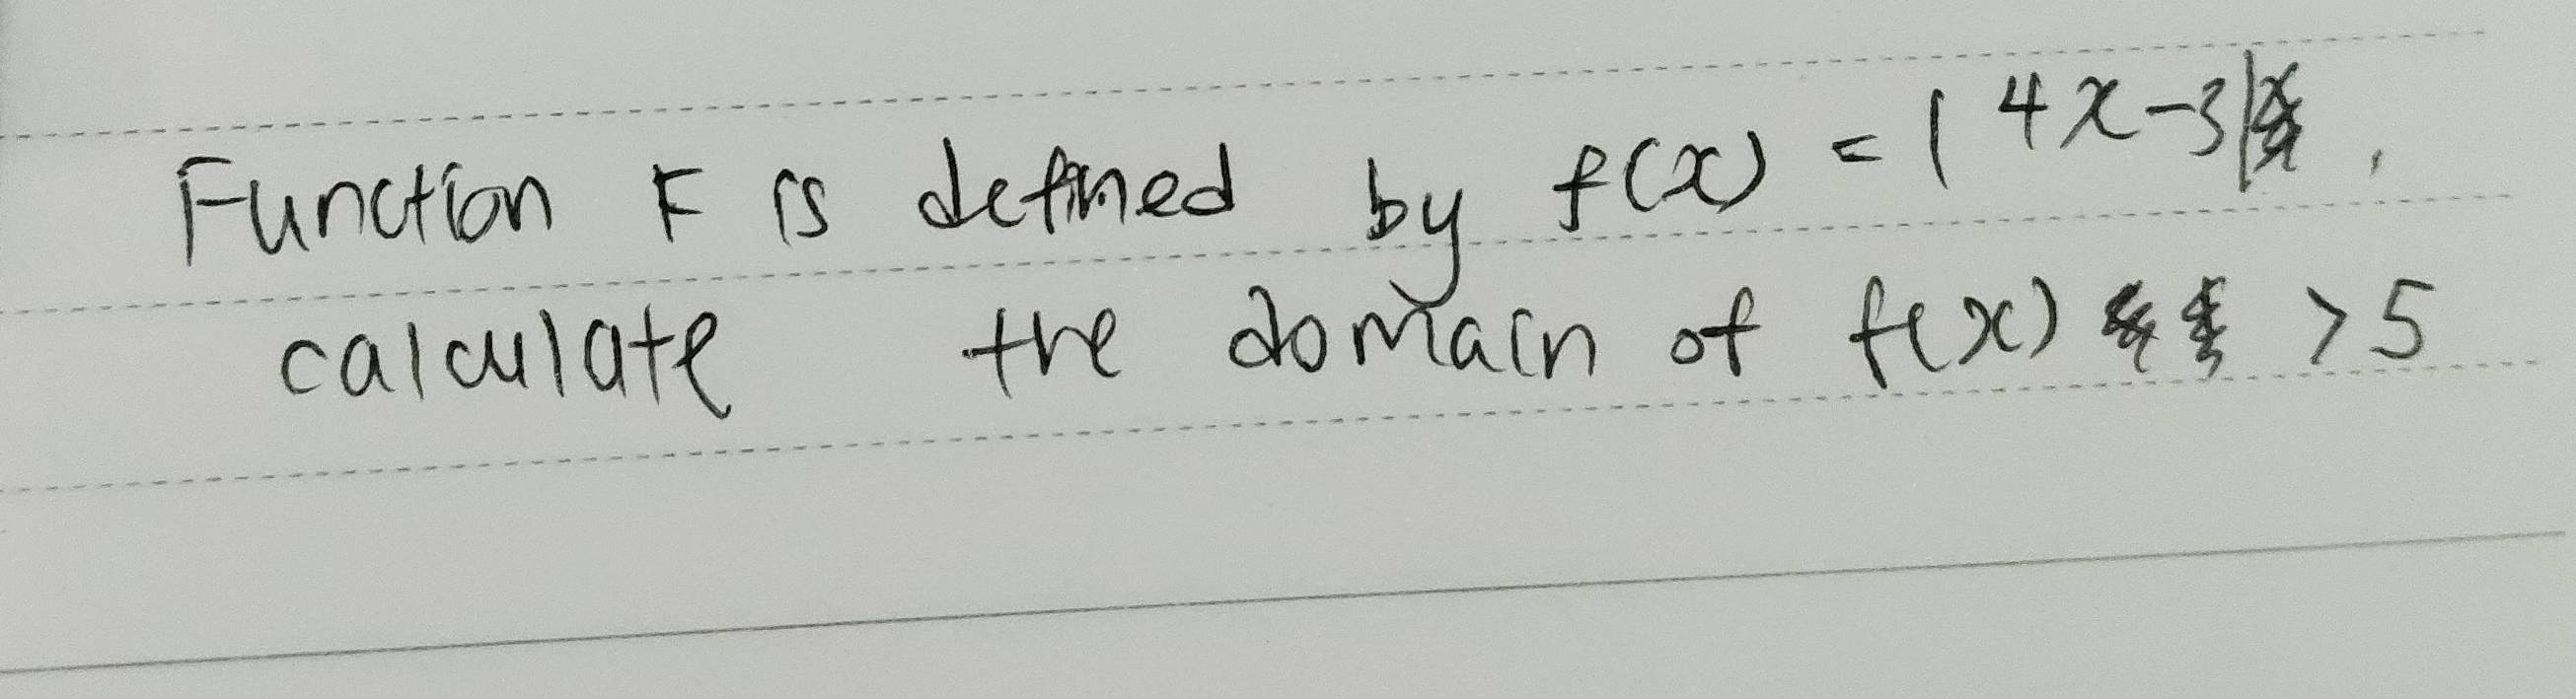 Function F is defined by f(x) = |4x-3|,
calculate the domain of f(x) > 5